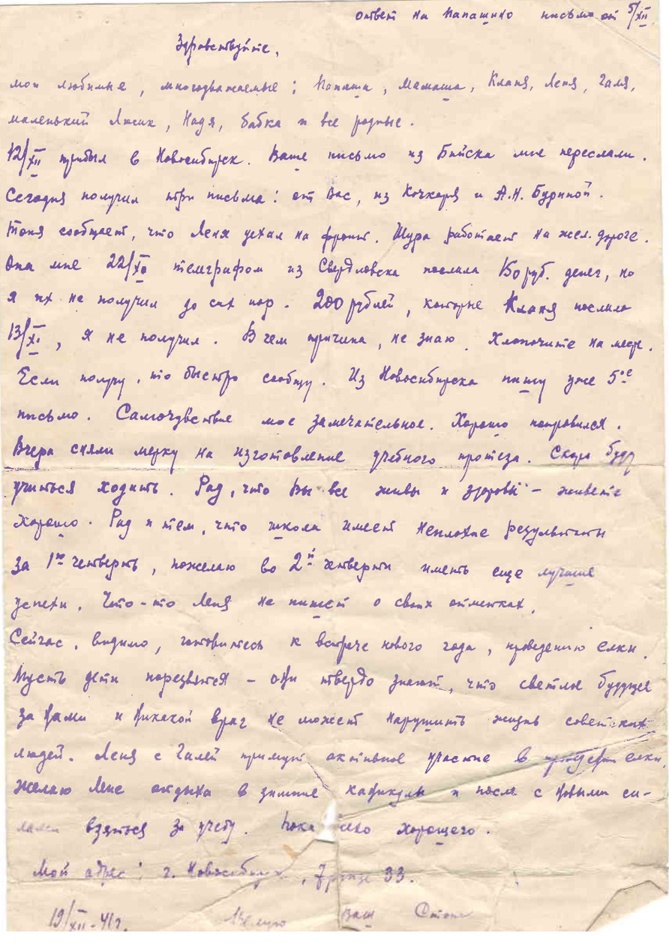 ответ на папашино письмо от 5/XII
Здравствуйте,
мои любимые, многоуважаемые: Папаша, Мамаша, Кланя, Леня, Галя,
маленький Люсик, Надя, бабка и все родные.
12/XII прибыл в Новосибирск. Ваше письмо из Бийска мне переслали.
Сегодня получил три письма: от Вас, из Кочкаря и А.Н. Буриной.
Тоня сообщает, что Леня уехал на фронт. Шура работает на жел. дороге.
Она мне 22/XI телеграфом из Свердловска послала 150 руб. денег, но
я их не получил до сих пор. 200 рублей, которые Кланя послала
13/XI, я не получил. В чем причина, не знаю. Хлопочите на месте.
Если получу, то быстро сообщу. Из Новосибирска пишу уже 5ое
письмо. Самочувствие мое замечательное. Хорошо поправился.
Вчера сняли мерку на изготовление учебного протеза. Скоро буду
учиться ходить. Рад, что Вы все живы и здоровы - живете
хорошо. Рад и тем, что школа имеет неплохие результаты
за 1ю четверть, пожелаю во 2й четверти иметь еще лучшие
успехи. Что-то Леня не пишет о своих отметках.
Сейчас, видимо, готовитесь к встрече нового года, проведению елки.
Пусть дети порезвятся - они твердо знают, что светлое будущее
за нами и никакой враг не может нарушить жизнь советских
людей. Леня с Галей примут активное участие в проведении елки.
Желаю Лене отдыха в зимние каникулы и после с новыми си-
лами взяться за учебу. Пока всего хорошего.
Мой адрес: г. Новосибирск, Фрунзе 33.
19/XII-41г. Ваш